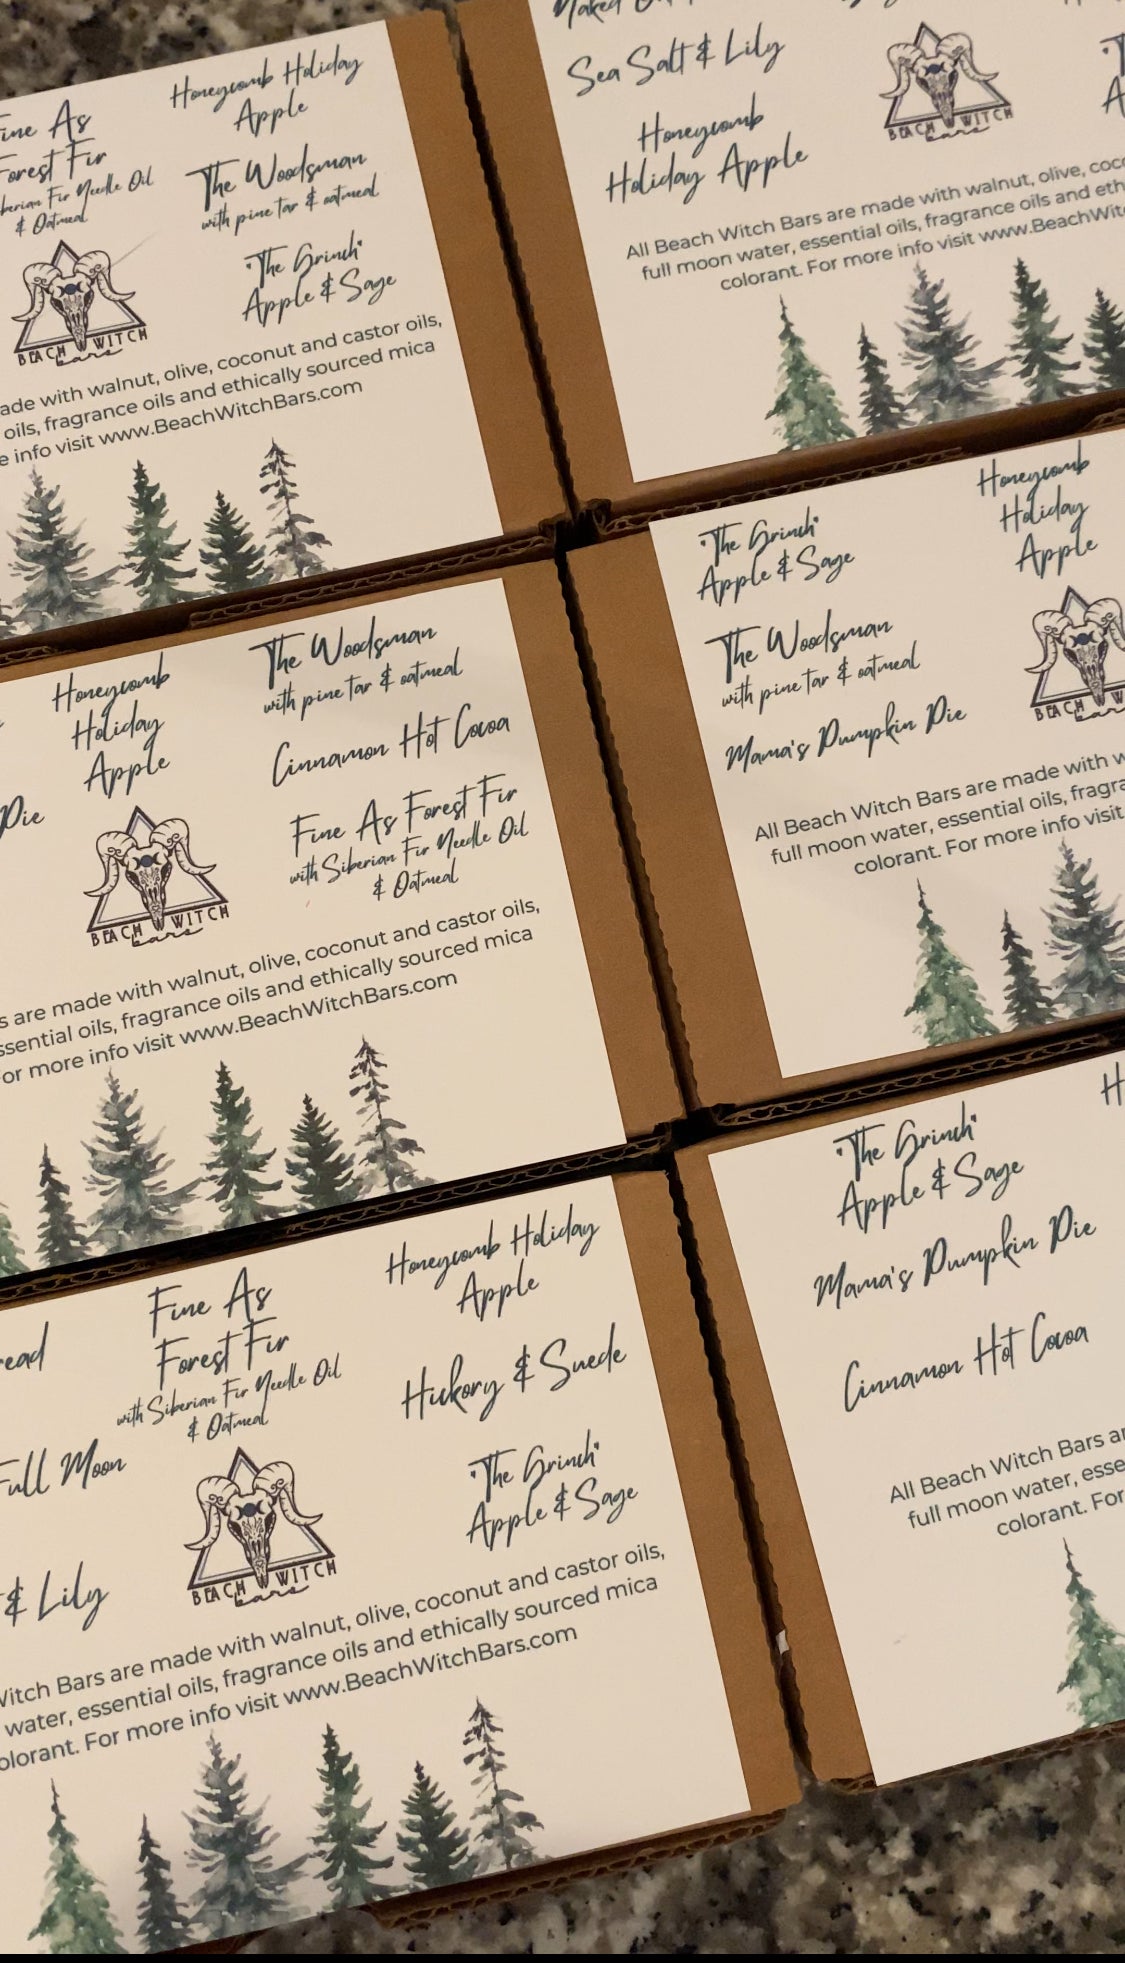 Fine As
Forest Fir
Siberian Fir Needle Oil
& Oatmeal
Honeycomb Holiday
Apple
The Woodsman
with pine tar & oatmeal
"The Grinch"
Apple & Sage
BEACH WITCH
bars
made with walnut, olive, coconut and castor oils,
oils, fragrance oils and ethically sourced mica
info visit www.BeachWitchBars.com
Naked
Sea Salt & Lily
Honeycomb
Holiday Apple
BEACH WITCH
bars
All Beach Witch Bars are made with walnut, olive, coco
full moon water, essential oils, fragrance oils and eth
colorant. For more info visit www.BeachWit
Pie
Honeycomb
Holiday
Apple
The Woodsman
with pine tar & oatmeal
Cinnamon Hot Cocoa
Fine As Forest Fir
with Siberian Fir Needle Oil
& Oatmeal
BEACH WITCH
bars
s are made with walnut, olive, coconut and castor oils,
ssential oils, fragrance oils and ethically sourced mica
or more info visit www.BeachWitchBars.com
"The Grinch"
Apple & Sage
The Woodsman
with pine tar & oatmeal
Mama's Pumpkin Pie
Honeycomb
Holiday
Apple
BEACH WITCH
bars
All Beach Witch Bars are made with w
full moon water, essential oils, fragra
colorant. For more info visit
read
Full Moon
& Lily
Fine As
Forest Fir
with Siberian Fir Needle Oil
& Oatmeal
Honeycomb Holiday
Apple
Hickory & Suede
"The Grinch"
Apple & Sage
BEACH WITCH
bars
Witch Bars are made with walnut, olive, coconut and castor oils,
water, essential oils, fragrance oils and ethically sourced mica
olorant. For more info visit www.BeachWitchBars.com
"The Grinch"
Apple & Sage
Mama's Pumpkin Pie
Cinnamon Hot Cocoa
H
All Beach Witch Bars ar
full moon water, esse
colorant. For